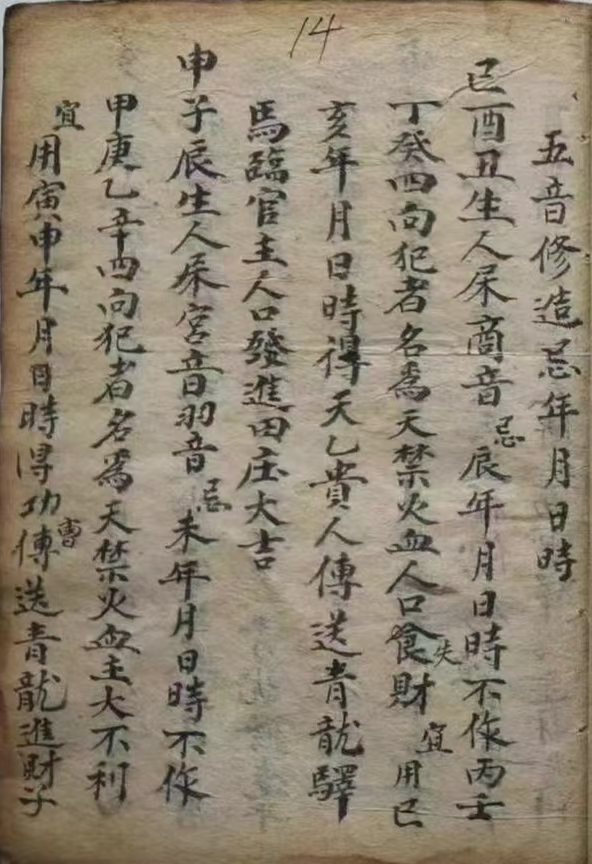 14
五音修造忌年月日時
巳酉丑生人屎商音忌辰年月日時不作丙壬
丁癸四向犯者名爲天禁火血人口食失財宜用巳
亥年月日時得天乙貴人傳送青龍驛
馬臨官主人口發進田庄大吉
申子辰生人屎宮音羽音忌未年月日時不作
甲庚乙辛四向犯者名爲天禁火血主大不利
宜用寅申年月日時得功曹傳送青龍進財子